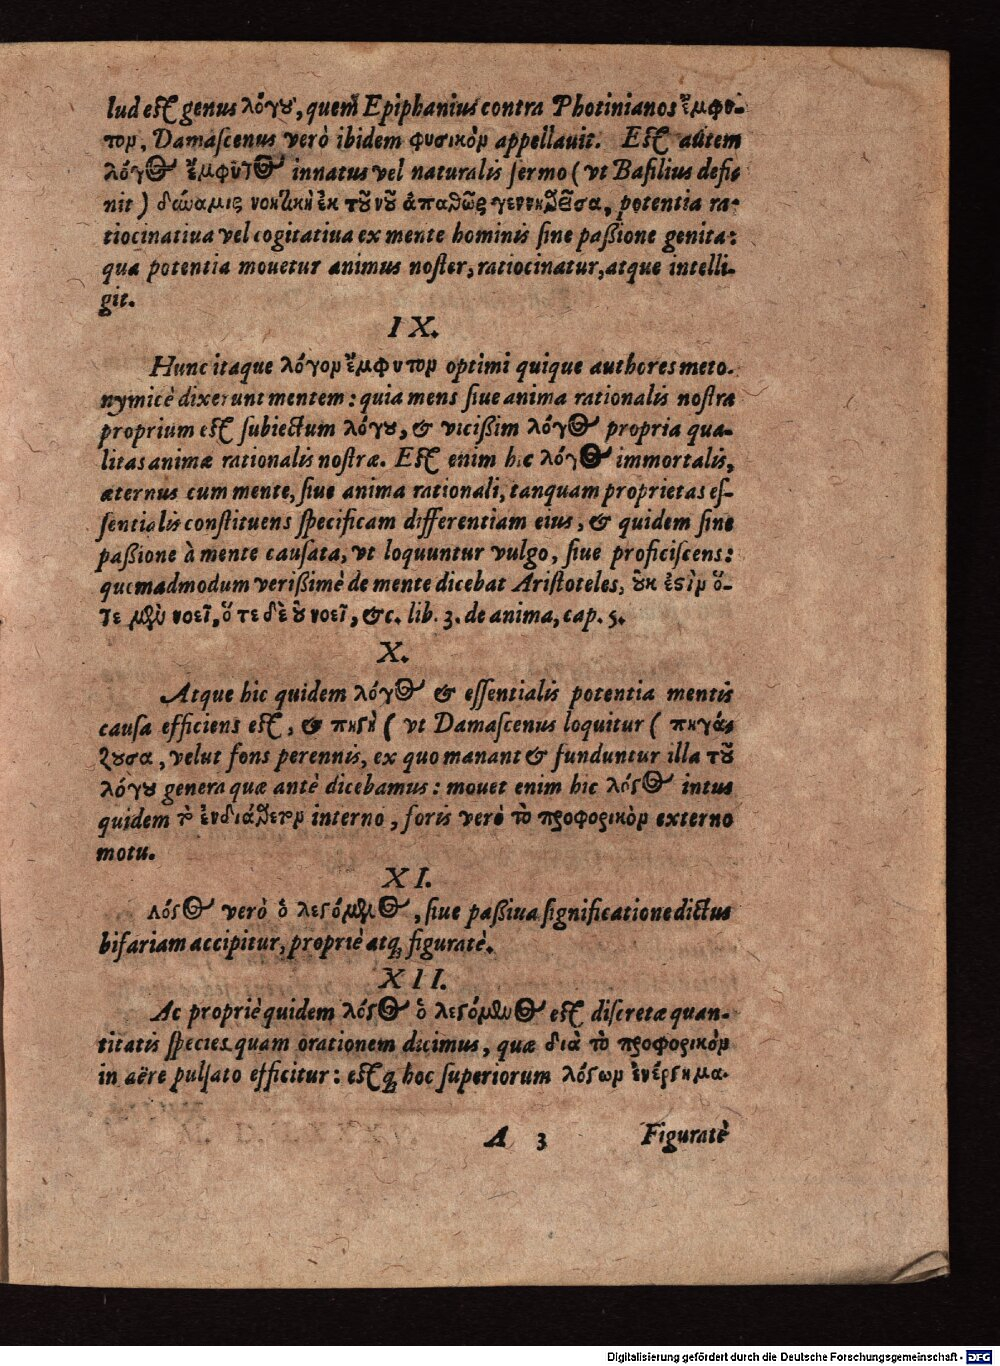 lud est genus λόγου, quem Epiphanius contra Photinianos ἔμφυ-
τον, Damascenus verò ibidem φυσικὸν appellauit. Est autem
λόγος ἔμφυτος innatus vel naturalis sermo (vt Basilius defi-
nit) δύναμις νοητικὴ ἐκ τοῦ νοῦ ἀπαθῶς γεννηθεῖσα, potentia ra-
tiocinatiua vel cogitatiua ex mente hominis sine passione genita:
qua potentia mouetur animus noster, ratiocinatur, atque intelli-
git.
IX.
Hunc itaque λόγον ἔμφυτον optimi quique authores meto-
nymicè dixerunt mentem: quia mens siue anima rationalis nostra
proprium est subiectum λόγου, & vicissim λόγος propria qua-
litas animæ rationalis nostræ. Est enim hic λόγος immortalis,
æternus cum mente, siue anima rationali, tanquam proprietas es-
sentialis constituens specificam differentiam eius, & quidem sine
passione à mente causata, vt loquuntur vulgo, siue proficiscens:
quemadmodum verissimè de mente dicebat Aristoteles, οὐκ ἐστὶν ὅ-
τε μὲν νοεῖ, ὅτε δὲ οὐ νοεῖ, &c. lib. 3. de anima, cap. 5.
X.
Atque hic quidem λόγος & essentialis potentia mentis
causa efficiens est, & πηγὴ ( vt Damascenus loquitur ( πηγά-
ζουσα, velut fons perennis, ex quo manant & funduntur illa τοῦ
λόγου genera quæ antè dicebamus: mouet enim hic λόγος intus
quidem τὸ ἐνδιάθετον interno, foris verò τὸ προφορικὸν externo
motu.
XI.
Λόγος verò ὁ λεγόμενος, siue passiua significatione dictus
bifariam accipitur, propriè atq; figuratè.
XII.
Ac propriè quidem λόγος ὁ λεγόμενος est discretæ quan-
titatis species quam orationem dicimus, quæ διὰ τὸ προφορικὸν
in aëre pulsato efficitur: estq; hoc superiorum λόγων ἐνέργημα.
A 3 Figuratè
Digitalisierung gefördert durch die Deutsche Forschungsgemeinschaft - DFG